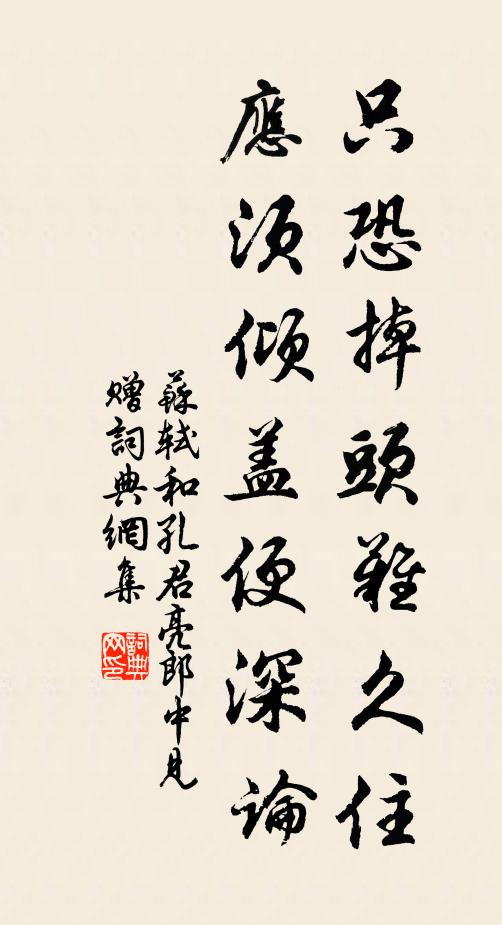 只恐掉頭難久住
應須傾盖便深論
蘇軾和孔君亮郎中見
贈詞典網集
詞典网印